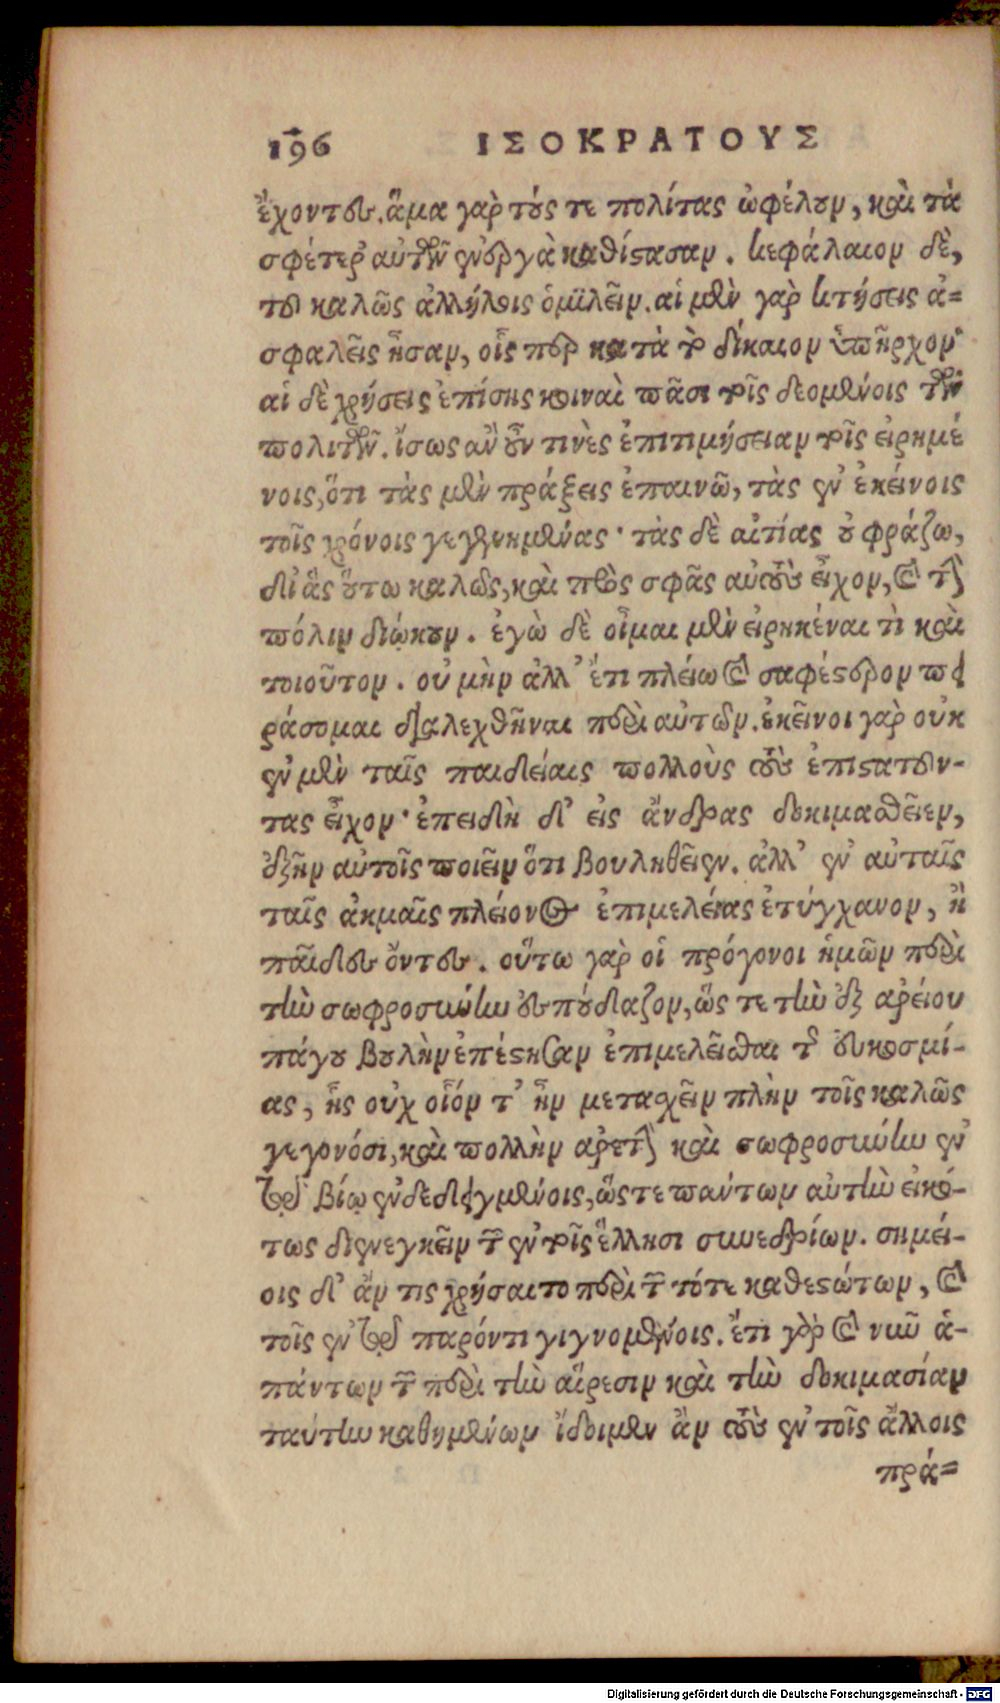 196 ΙΣΟΚΡΑΤΟΥΣ
ἔχοντες. ἅμα γὰρ τούς τε πολίτας ὠφέλουν, καὶ τὰ
σφέτερ' αὐτῶν ἐνεργὰ καθίστασαν. κεφάλαιον δὲ,
τοῦ καλῶς ἀλλήλοις ὁμιλεῖν. αἱ μὲν γὰρ κτήσεις ἀ=
σφαλεῖς ἦσαν, οἷς περ κατὰ τὸ δίκαιον ὑπῆρχον·
αἱ δὲ χρήσεις ἐπίσης κοιναὶ πᾶσι τοῖς δεομένοις τῶν
πολιτῶν. ἴσως ἂν οὖν τινὲς ἐπιτιμήσειαν τοῖς εἰρημέ
νοις, ὅτι τὰς μὲν πράξεις ἐπαινῶ, τὰς ἐν ἐκείνοις
τοῖς χρόνοις γεγενημένας· τὰς δὲ αἰτίας οὐ φράζω,
δι' ἃς οὕτω καλῶς, καὶ πρὸς σφᾶς αὐτοὺς εἶχον, καὶ τὴν
πόλιν διῴκουν. ἐγὼ δὲ οἶμαι μὲν εἰρηκέναι τὶ καὶ
τοιοῦτον. οὐ μὴν ἀλλ' ἔτι πλείω καὶ σαφέστερον πει
ράσομαι διαλεχθῆναι περὶ αὐτῶν. ἐκεῖνοι γὰρ οὐκ
ἐν μὲν ταῖς παιδείαις πολλοὺς τοὺς ἐπιστατοῦν-
τας εἶχον· ἐπειδὴ δ' εἰς ἄνδρας δοκιμασθεῖεν,
ἐξῆν αὐτοῖς ποιεῖν ὅτι βουληθεῖεν. ἀλλ' ἐν αὐταῖς
ταῖς ἀκμαῖς πλείονος ἐπιμελείας ἐτύγχανον, ἢ
παῖδες ὄντες. οὕτω γὰρ οἱ πρόγονοι ἡμῶν περὶ
τὴν σωφροσύνην ἐσπούδαζον, ὥς τε τὴν ἐξ ἀρείου
πάγου βουλὴν ἐπέστησαν ἐπιμελεῖσθαι τῆς εὐκοσμί-
ας, ἧς οὐχ οἷόν τ' ἦν μετασχεῖν πλὴν τοῖς καλῶς
γεγονόσι, καὶ πολλὴν ἀρετὴν καὶ σωφροσύνην ἐν
τῷ βίῳ ἐνδεδειγμένοις, ὥς τε πάντων αὐτὴν εἰκό-
τως διενεγκεῖν τῶν ἐν τοῖς ἕλλησι συνεδρίων. σημεί-
οις δ' ἄν τις χρήσαιτο περὶ τῶν τότε καθεστώτων, καὶ
τοῖς ἐν τῷ παρόντι γιγνομένοις. ἔτι γὰρ καὶ νῦν ἁ-
πάντων τῶν περὶ τὴν αἵρεσιν καὶ τὴν δοκιμασίαν
ταύτην καθημένων ἴδοιμεν ἂν τοὺς ἐν τοῖς ἄλλοις
πρά=
Digitalisierung gefördert durch die Deutsche Forschungsgemeinschaft - DFG